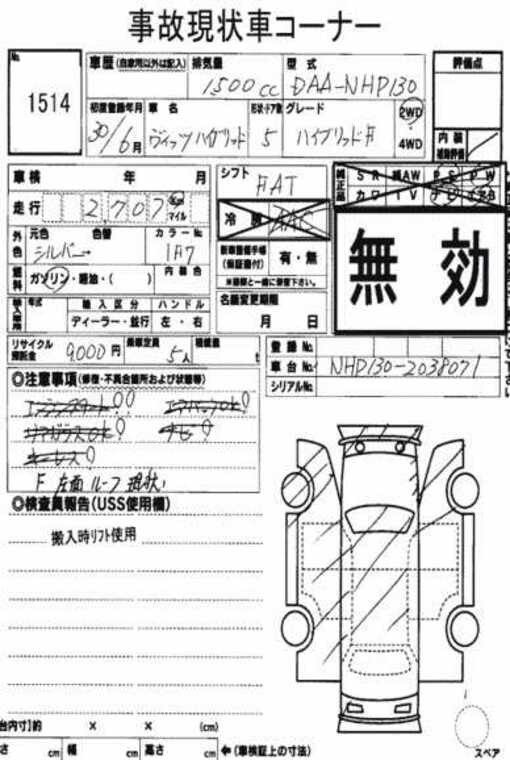 事故現状車コーナー
No.
1514
車歴(自家用以外は記入)
排気量
1500cc
型式
DAA-NHP130
評価点
初度登録年月
30/6月
車名
ヴィッツハイブリッド
形状・ドア数
5
グレード
ハイブリッドF
2WD
4WD
内装
補助評価
車検 年 月
シフト
FAT
純正品
SR 純AW PS PW
カワ TV ナビ エアB
走行
2,707
Km
マイル
冷房
AAC
無効
外色
元色
色替
カラーNo.
シルバー
1F7
新車整備手帳
(保証書付)
有・無
※書類と一緒に保管下さい。
燃料
ガソリン・軽油・( )
内装色
名義変更期限
月 日
輸入車用
年式
輸入区分
ハンドル
ディーラー・並行
左・右
リサイクル
預託金
9,000円
乗車定員
5人
積載量
t
登録No.
車台No.
NHP130-2038071
シリアルNo.
◎注意事項(修復・不具合箇所および状態等)
ナビ!
キーレス!
F 左面 ルーフ 現状!
◎検査員報告(USS使用欄)
搬入時リフト使用
台内寸)約 × × (cm)
さ cm 幅 cm 高さ cm ←(車検証上の寸法)
スペア